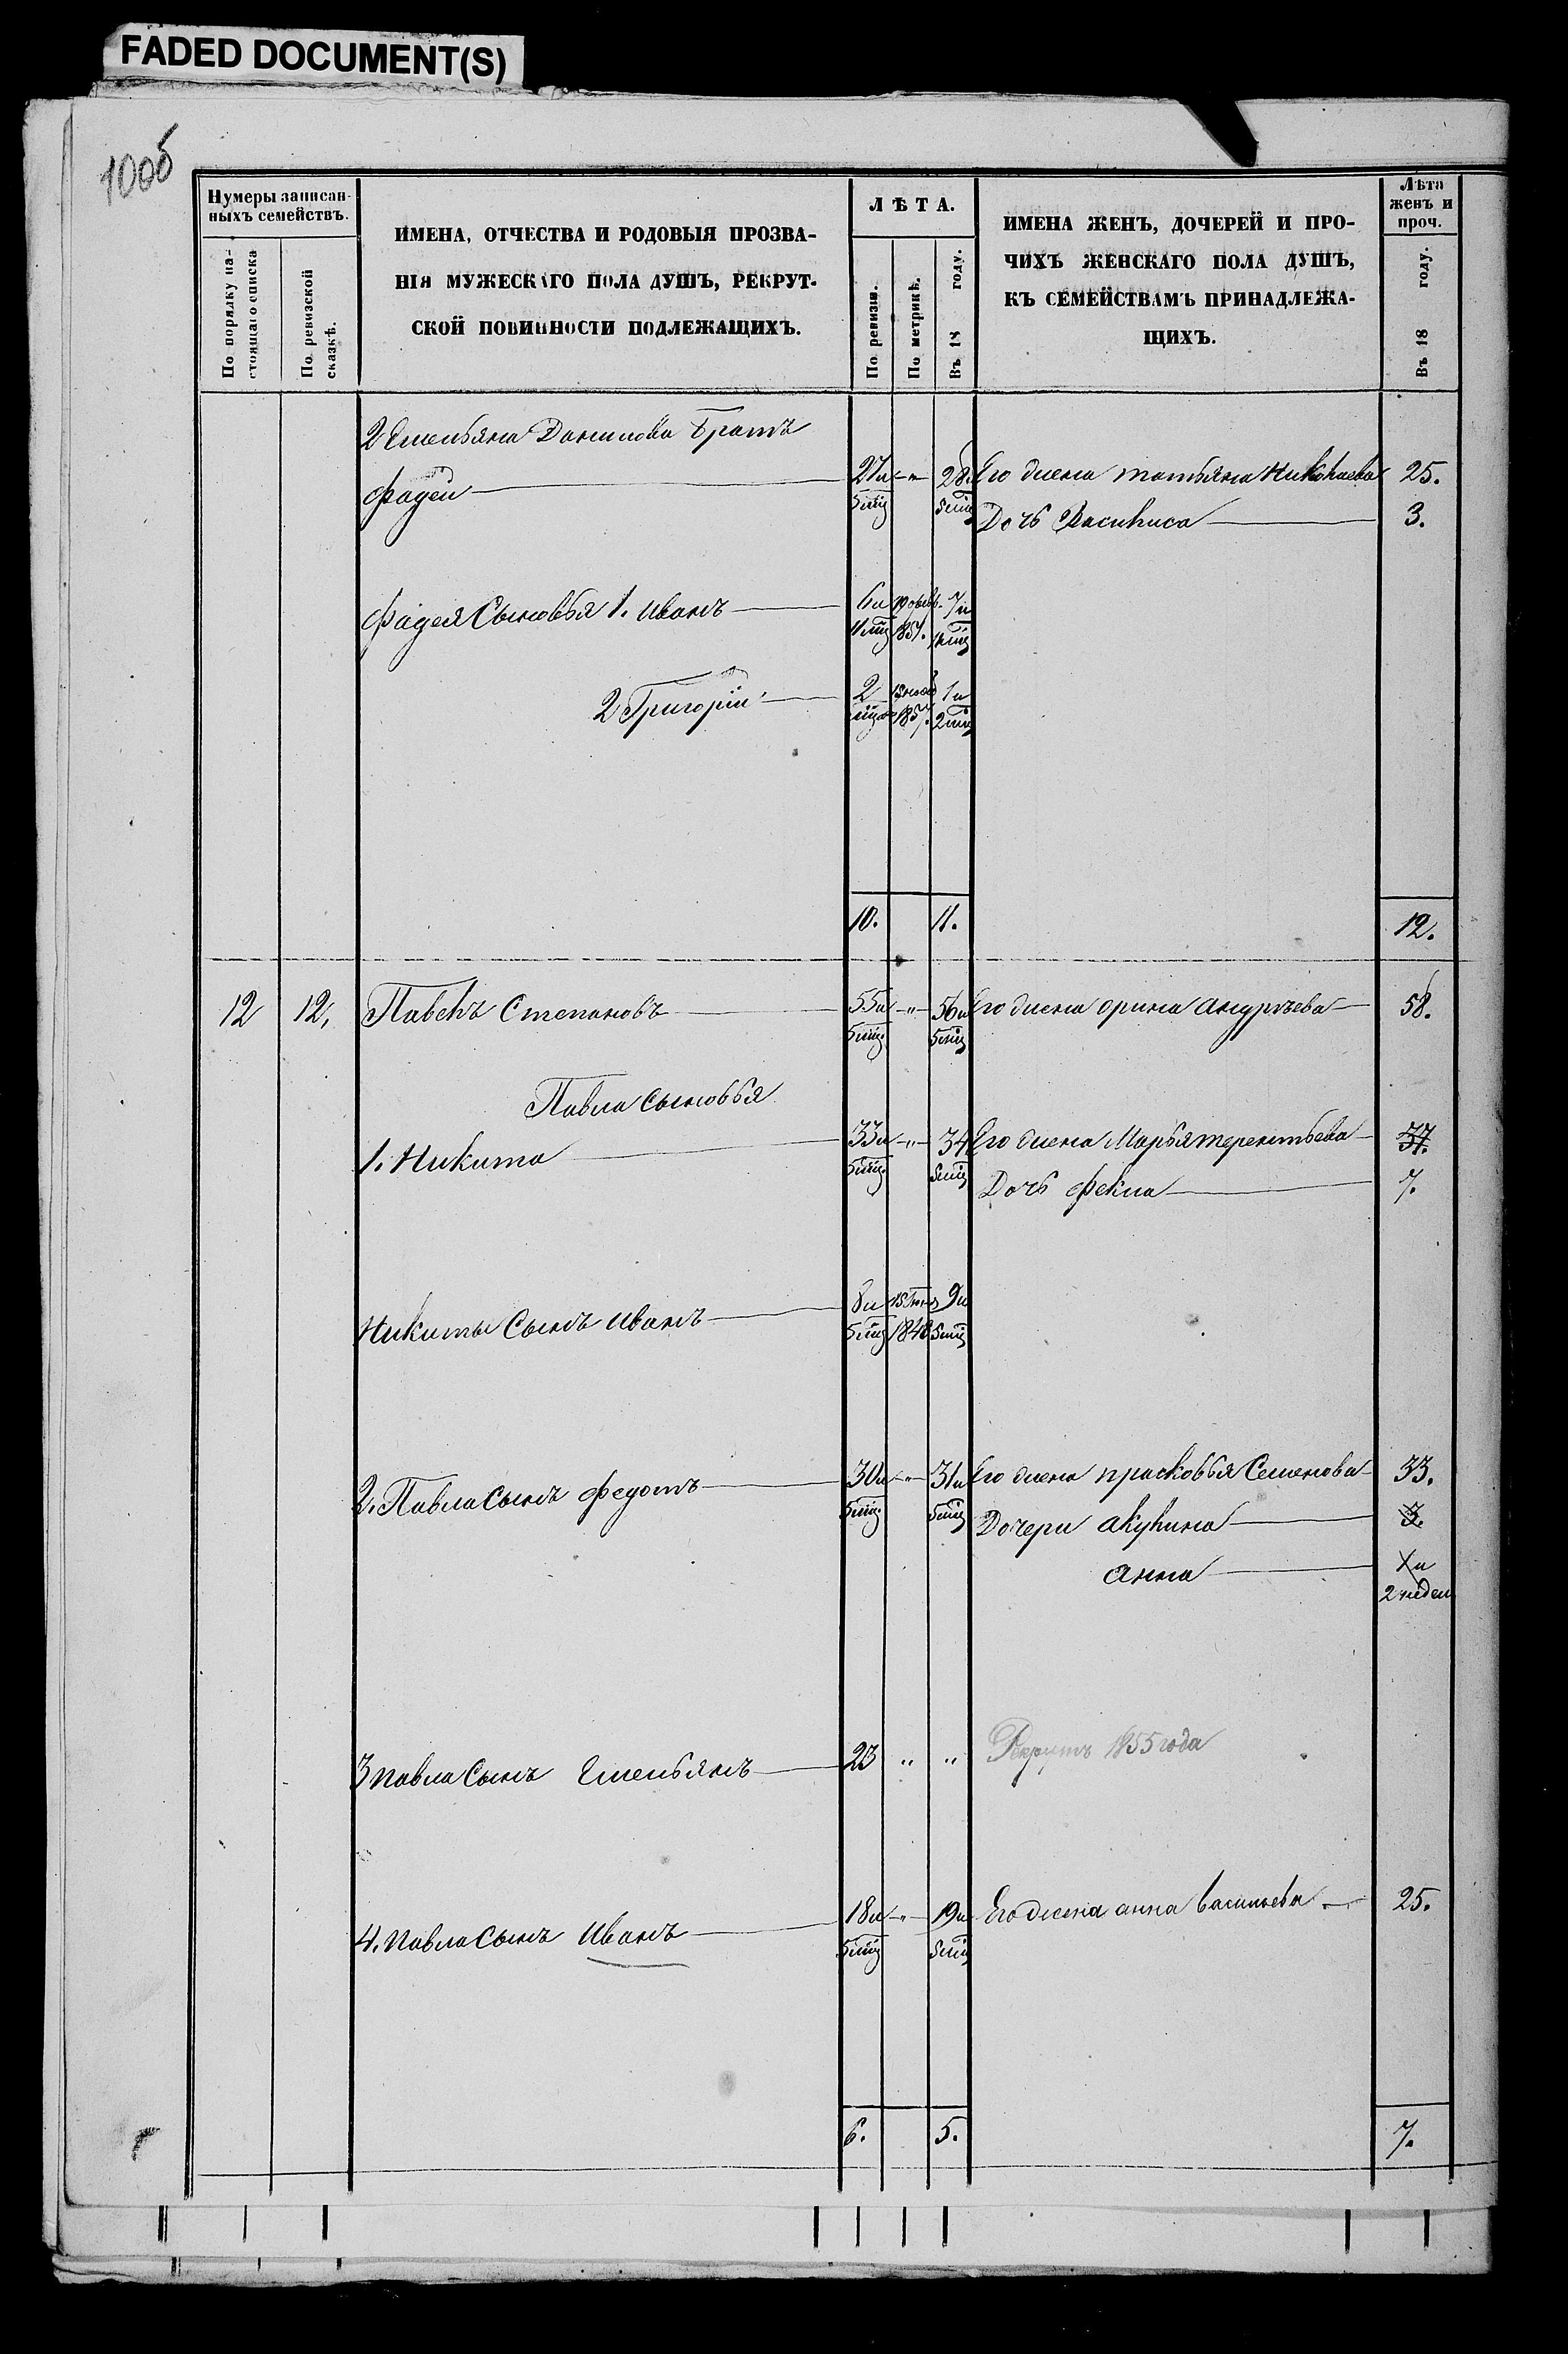 FADED DOCUMENT(S)
100б
Нумеры записан-
ныхъ семействъ.
По порядку на-
стоящаго списка
По ревизской
сказкѣ.
ИМЕНА, ОТЧЕСТВА И РОДОВЫЯ ПРОЗВА-
НІЯ МУЖЕСКАГО ПОЛА ДУШЪ, РЕКРУТ-
СКОЙ ПОВИННОСТИ ПОДЛЕЖАЩИХЪ.
ЛѢТА.
По ревизіи.
По метрикѣ.
Въ 18 году.
ИМЕНА ЖЕНЪ, ДОЧЕРЕЙ И ПРО-
ЧИХЪ ЖЕНСКАГО ПОЛА ДУШЪ,
КЪ СЕМЕЙСТВАМЪ ПРИНАДЛЕЖА-
ЩИХЪ.
Лѣта
женъ и
проч.
Въ 18 году.
2 Емельяна Данилова Братъ
Фадей 27и 28и Его жена татьяна Николаева 25.
5мц 5мц Дочь Василиса 3.
Фадея Сыновья 1. Иванъ 6и 7и
2 Григорій 2 1и
1857. 2мц
10. 11. 12.
12 12, Павелъ Степановъ 55и „ 56и Его жена орина андрѣева 58.
5мц. 5мц
Павла Сыновья
1. Никита 33и „ 34 Его жена Марья терентьева 37.
5мц. 5мц Дочь Фекла 7.
Никиты Сынъ Иванъ 8и 9и
5мц 1848 5мц
2. Павла Сынъ Федотъ 30и „ 31и Его жена прасковья Семенова 33.
5мц. 5мц Дочери акулина 3.
анна 1и
2 недел
3 павла Сынъ Емельянъ 23 „ „ Рекрутъ 1855 года
4. павла Сынъ Иванъ 18и „ 19и Его жена анна васильева 25.
5мц 5мц
6. 5. 7.